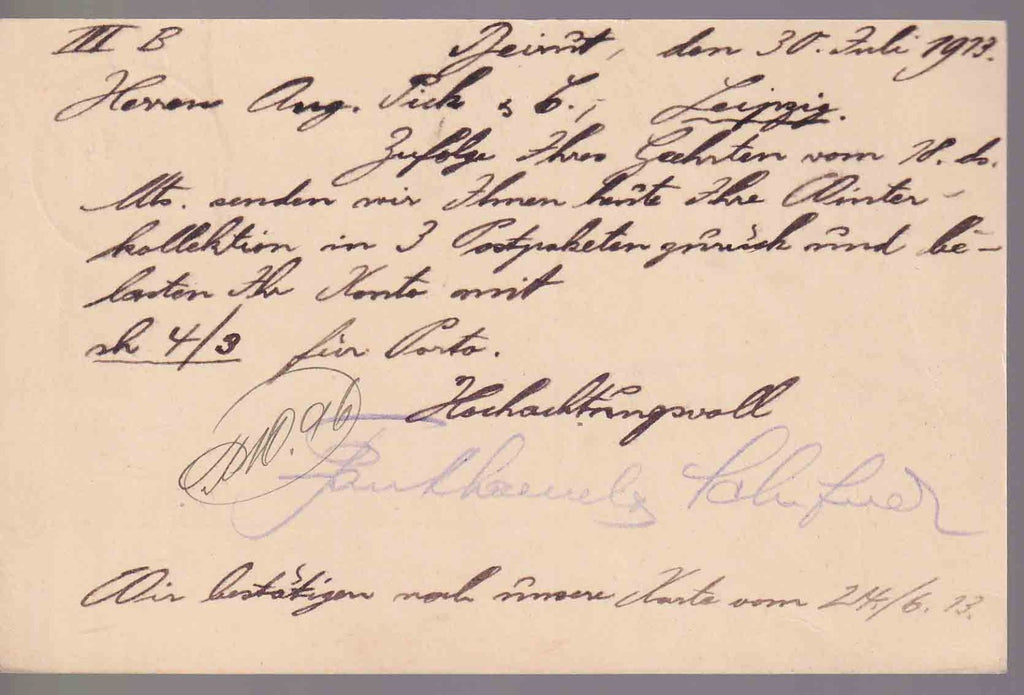 III B Beirut, den 30. Juli 1913.
Herren Aug. Pick & C., Leipzig.
Zufolge Ihres Geehrten vom 18. ds.
Mts. senden wir Ihnen heute Ihre Winter-
kollektion in 3 Postpaketen zurück und be-
lasten Ihr Konto mit
sh 4/3 für Porto.
Hochachtungsvoll
Wir bestätigen noch unsere Karte vom 24./6. 13.